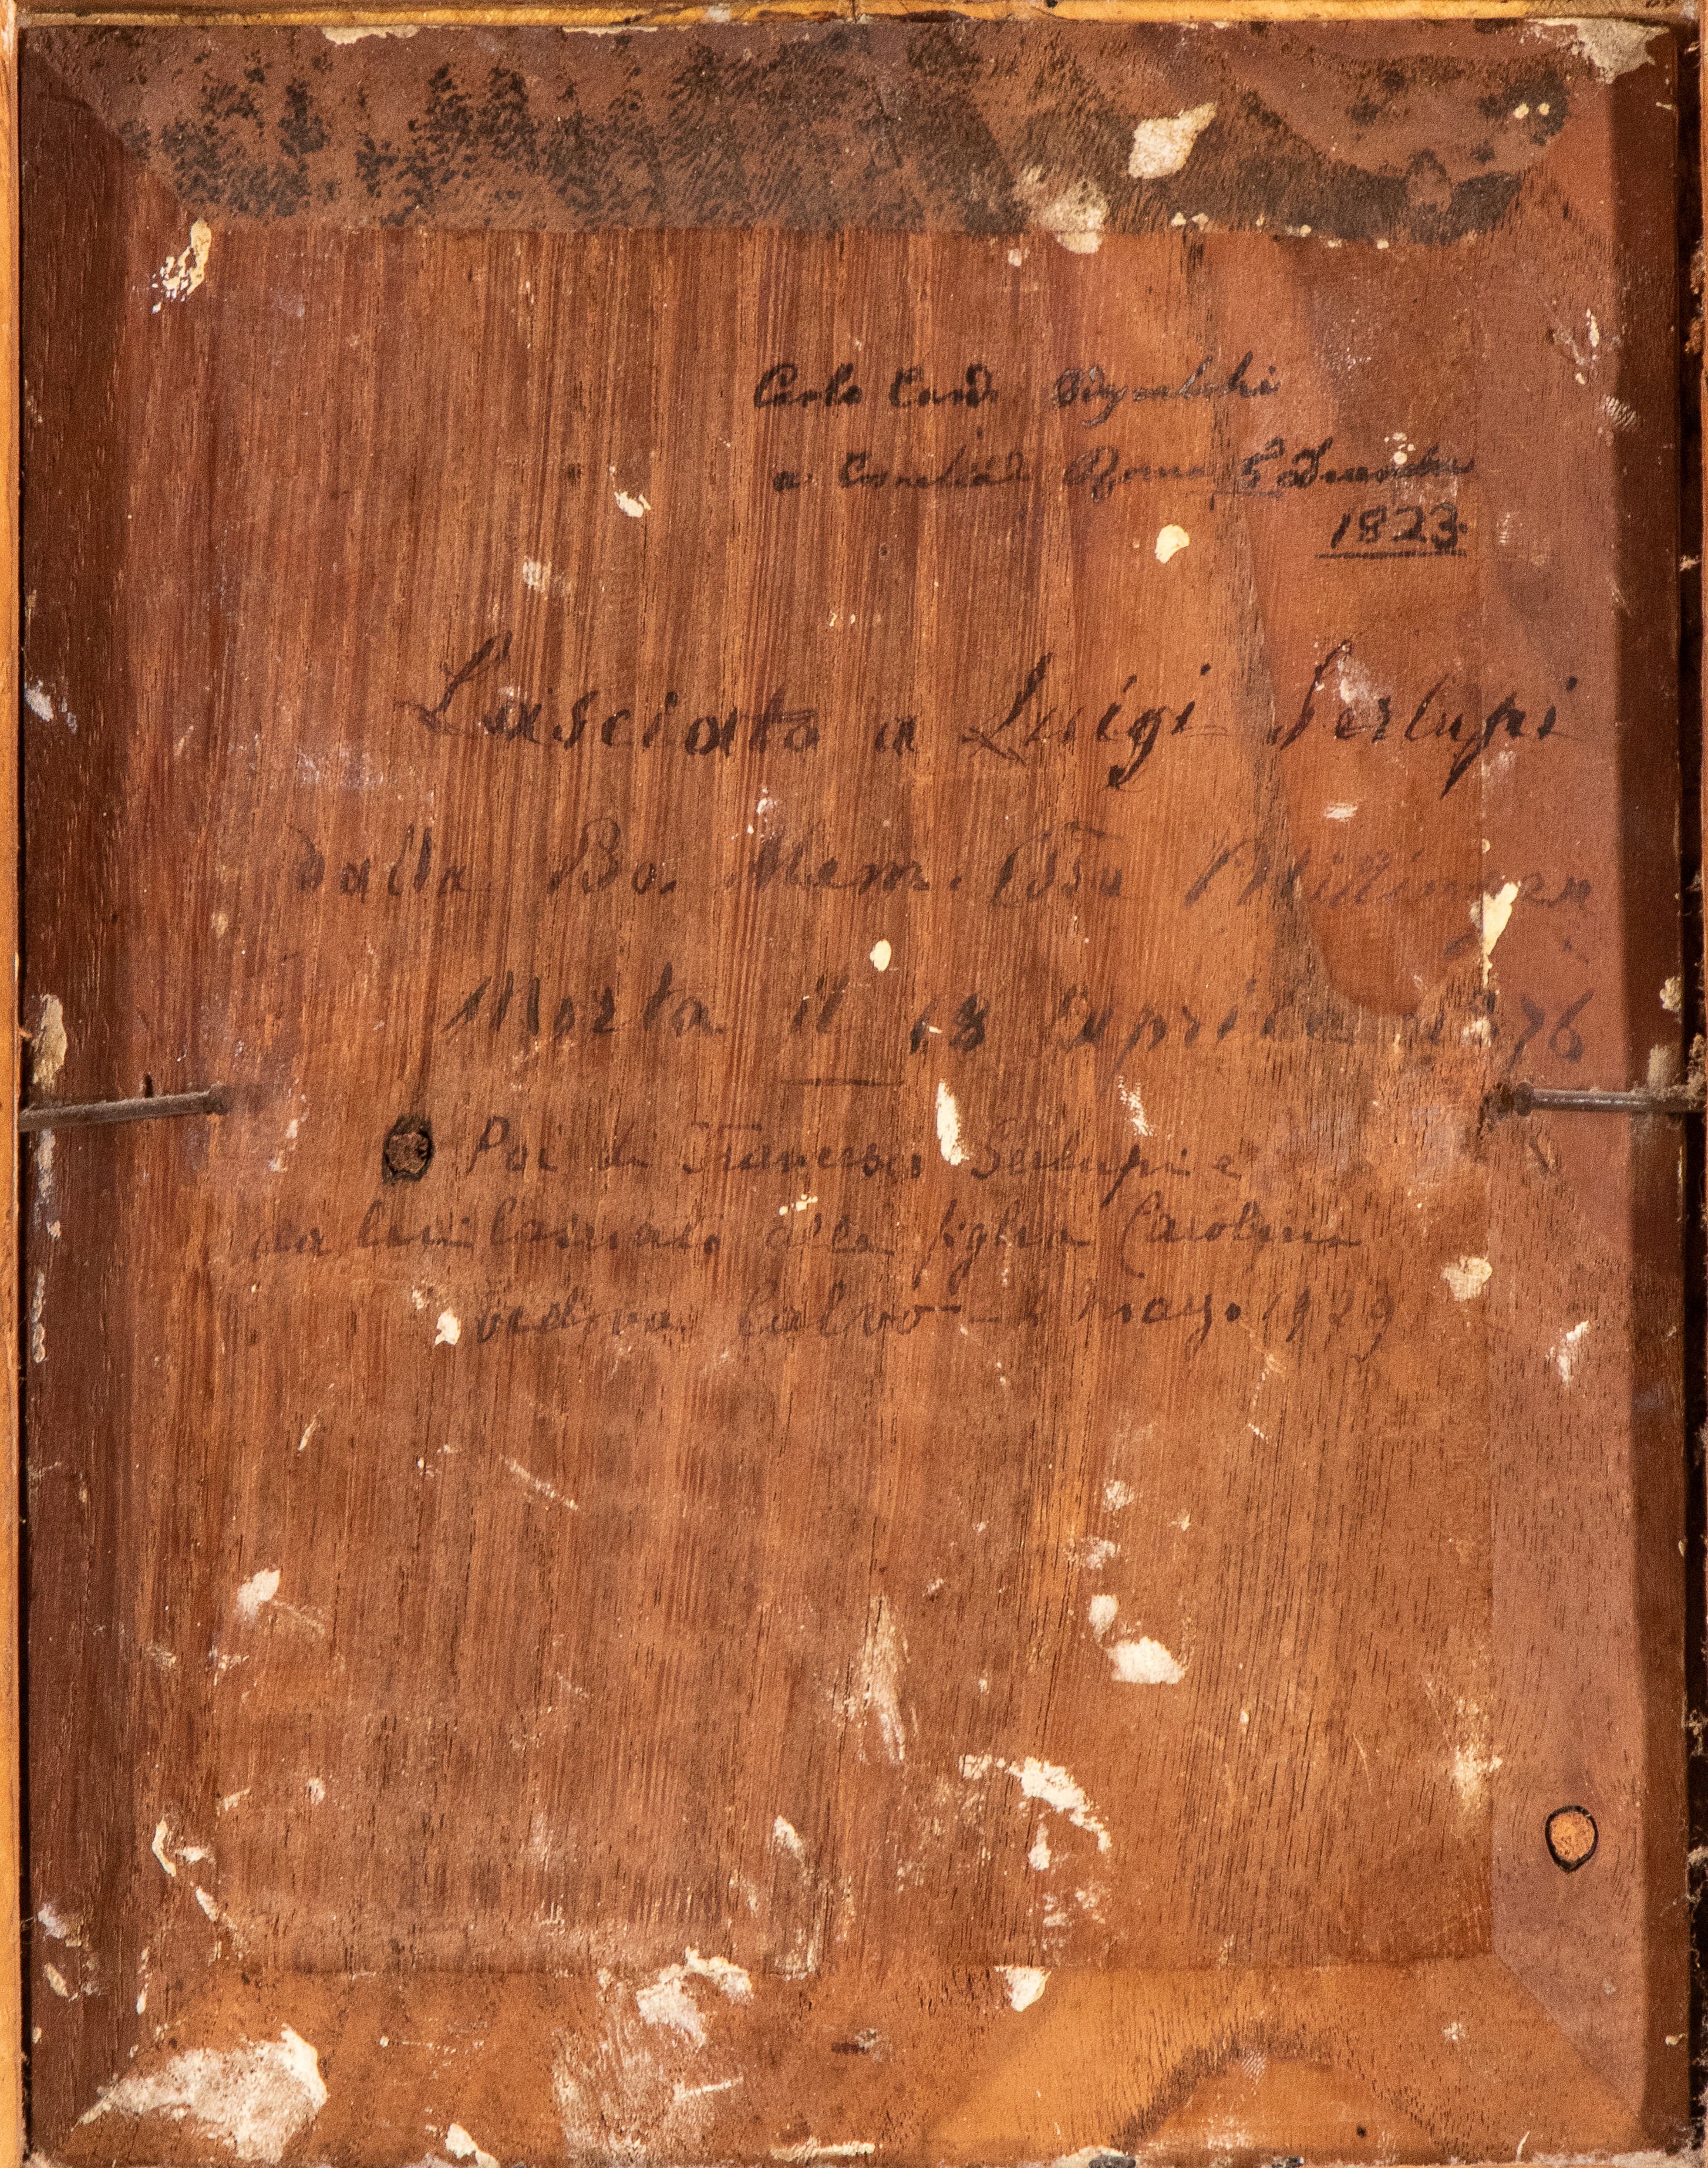 Carlo Card.
a Roma
1823.
Lasciato a Luigi Serlupi
dalla Bo. Mem.
Morta il 18 Aprile 1876
Poi di Francesco Serlupi e
da lui lasciato alla figlia Carolina
vedova Calvo - 4 1929